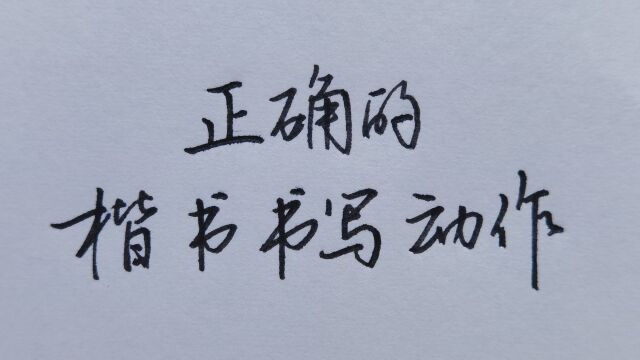 正确的
楷书书写动作